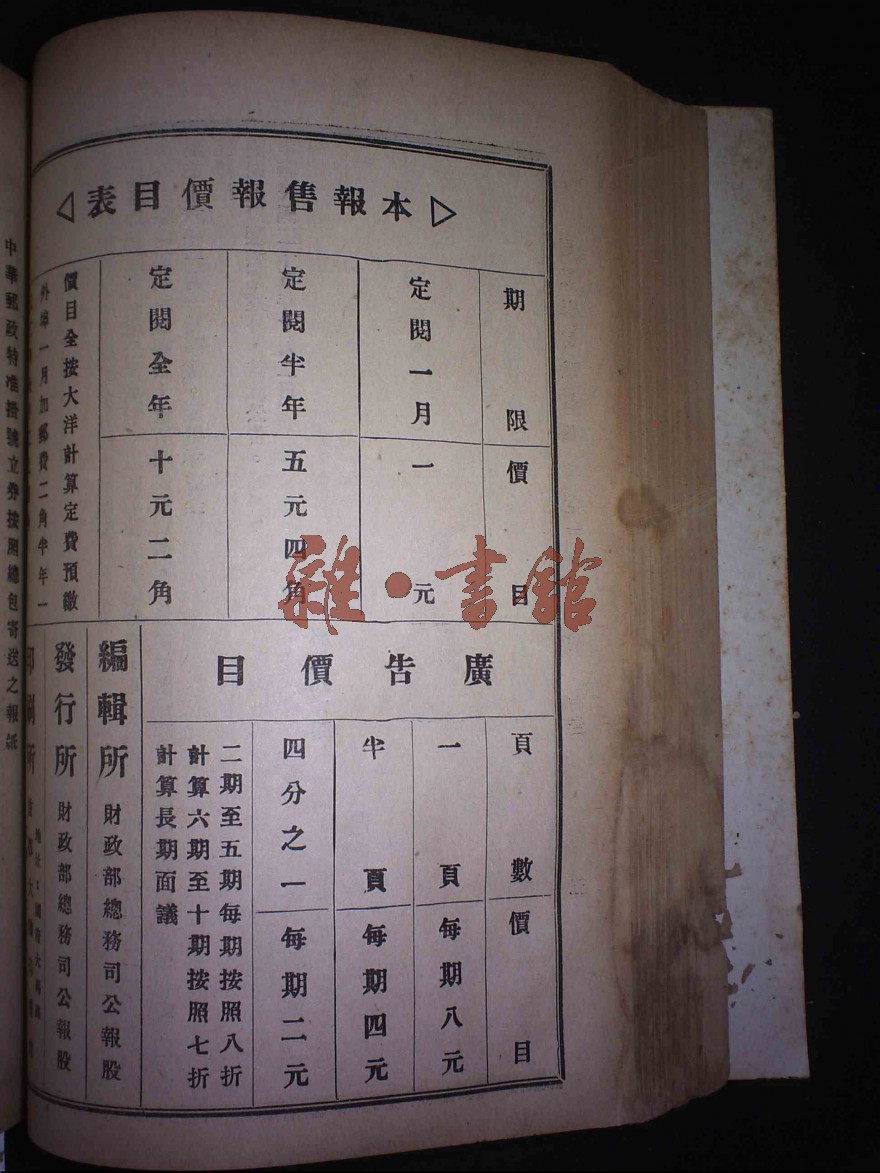 本報售報價目表
期限
價目
定閱一月
一元
定閱半年
五元四角
定閱全年
十元二角
價目全按大洋計算定費預繳
外埠一月加郵費二角半年一
廣告價目
頁數
價目
一頁
每期八元
半頁
每期四元
四分之一
每期二元
二期至五期每期按照八折
計算六期至十期按照七折
計算長期面議
編輯所 財政部總務司公報股
發行所 財政部總務司公報股
印刷所
中華郵政特准掛號立券按照總包寄送之報紙
雜·書館